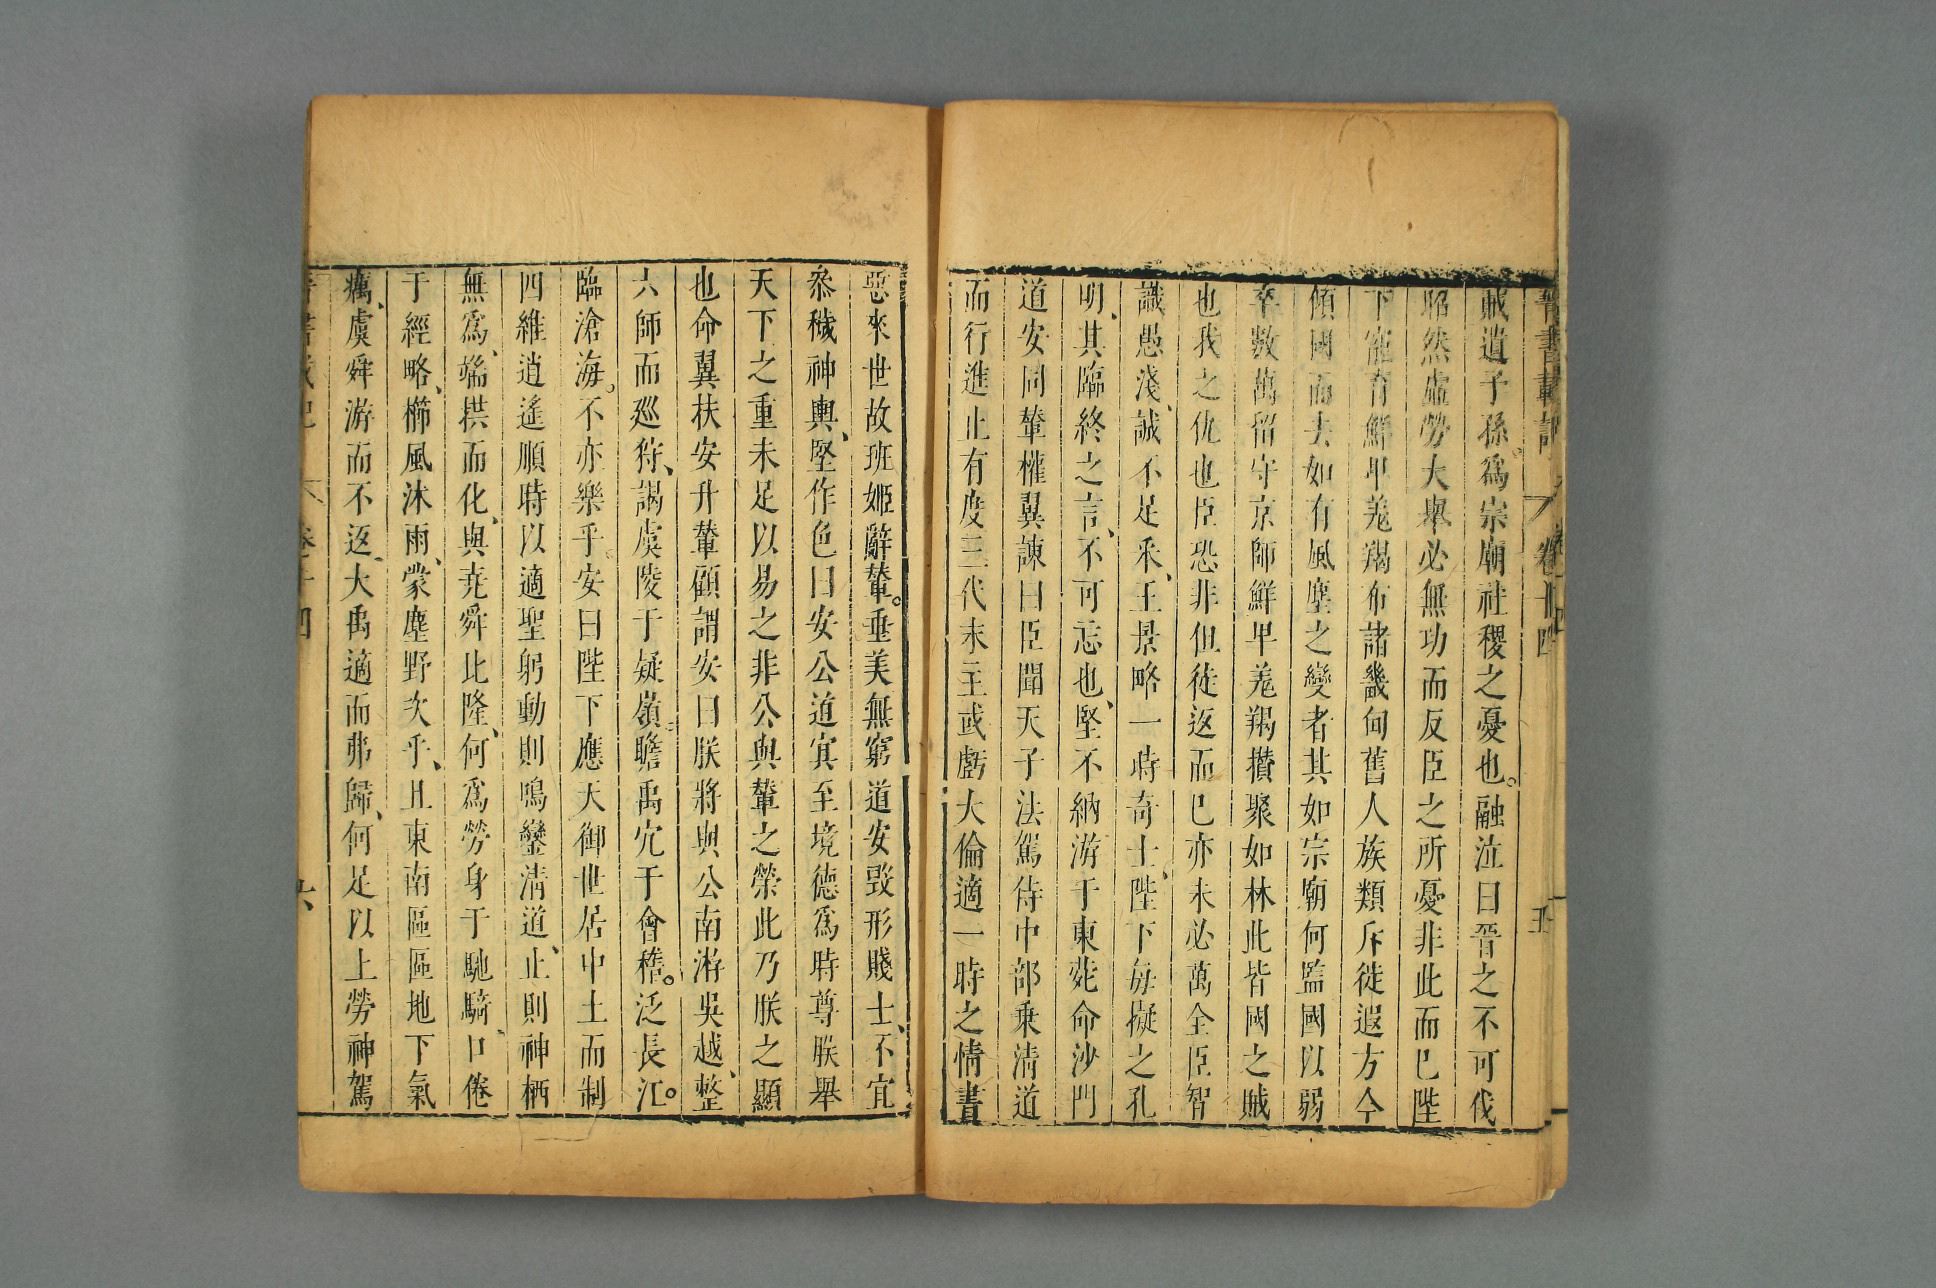 晉書載記 卷十四 五
賊遺子孫爲宗廟社稷之憂也。融泣曰晉之不可伐
昭然虛勞大舉必無功而反臣之所憂非此而已陛
下寵育鮮卑羌羯布諸畿甸舊人族類斥徙遐方今
傾國而去如有風塵之變者其如宗廟何監國以弱
卒數萬留守京師鮮卑羌羯攢聚如林此皆國之賊
也我之仇也臣恐非但徒返而已亦未必萬全臣智
識愚淺、誠不足采、王景略一時奇士、陛下每擬之孔
明、其臨終之言、不可忘也、堅不納游于東苑命沙門
道安同輦權翼諫曰臣聞天子法駕侍中部乘淸道
而行進止有度三代末主或虧大倫適一時之情書
惡來世故班姬辭輦。垂美無窮道安毀形賤士、不宜
叅穢神輿、堅作色曰安公道冥至境德爲時尊朕舉
天下之重未足以易之非公與輦之榮此乃朕之顯
也命翼扶安升輦顧謂安曰朕將與公南游吳越、整
六師而巡狩、謁虞陵于疑嶺瞻禹穴于會稽。泛長江。
臨滄海。不亦樂乎。安曰陛下應天御世居中土而制
四維逍遙順時以適聖躬動則鳴鑾淸道、止則神栖
無爲、端拱而化、與堯舜比隆、何爲勞身于馳騎、口倦
于經略、櫛風沐雨、蒙塵野次乎、且東南區區地下氣
癘、虞舜游而不返、大禹適而弗歸、何足以上勞神駕
卷十四 六